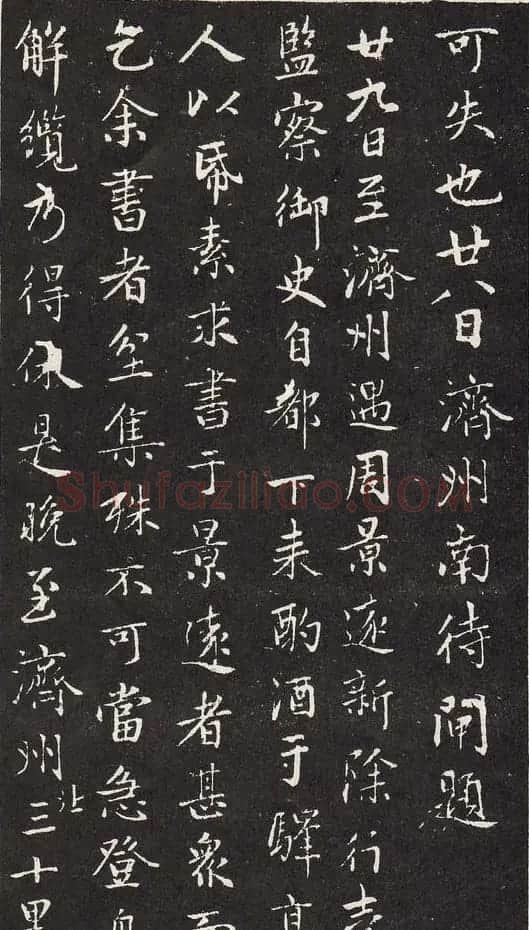 可失也廿八日濟州南待閘題
廿九日至濟州遇周景遠新除行臺
監察御史自都下来酌酒于驛亭
人以帋素求書于景遠者甚衆而
乞余書者坌集殊不可當急登舟
解纜乃得休是晚至濟州北三十里
Shufaziliao.COM